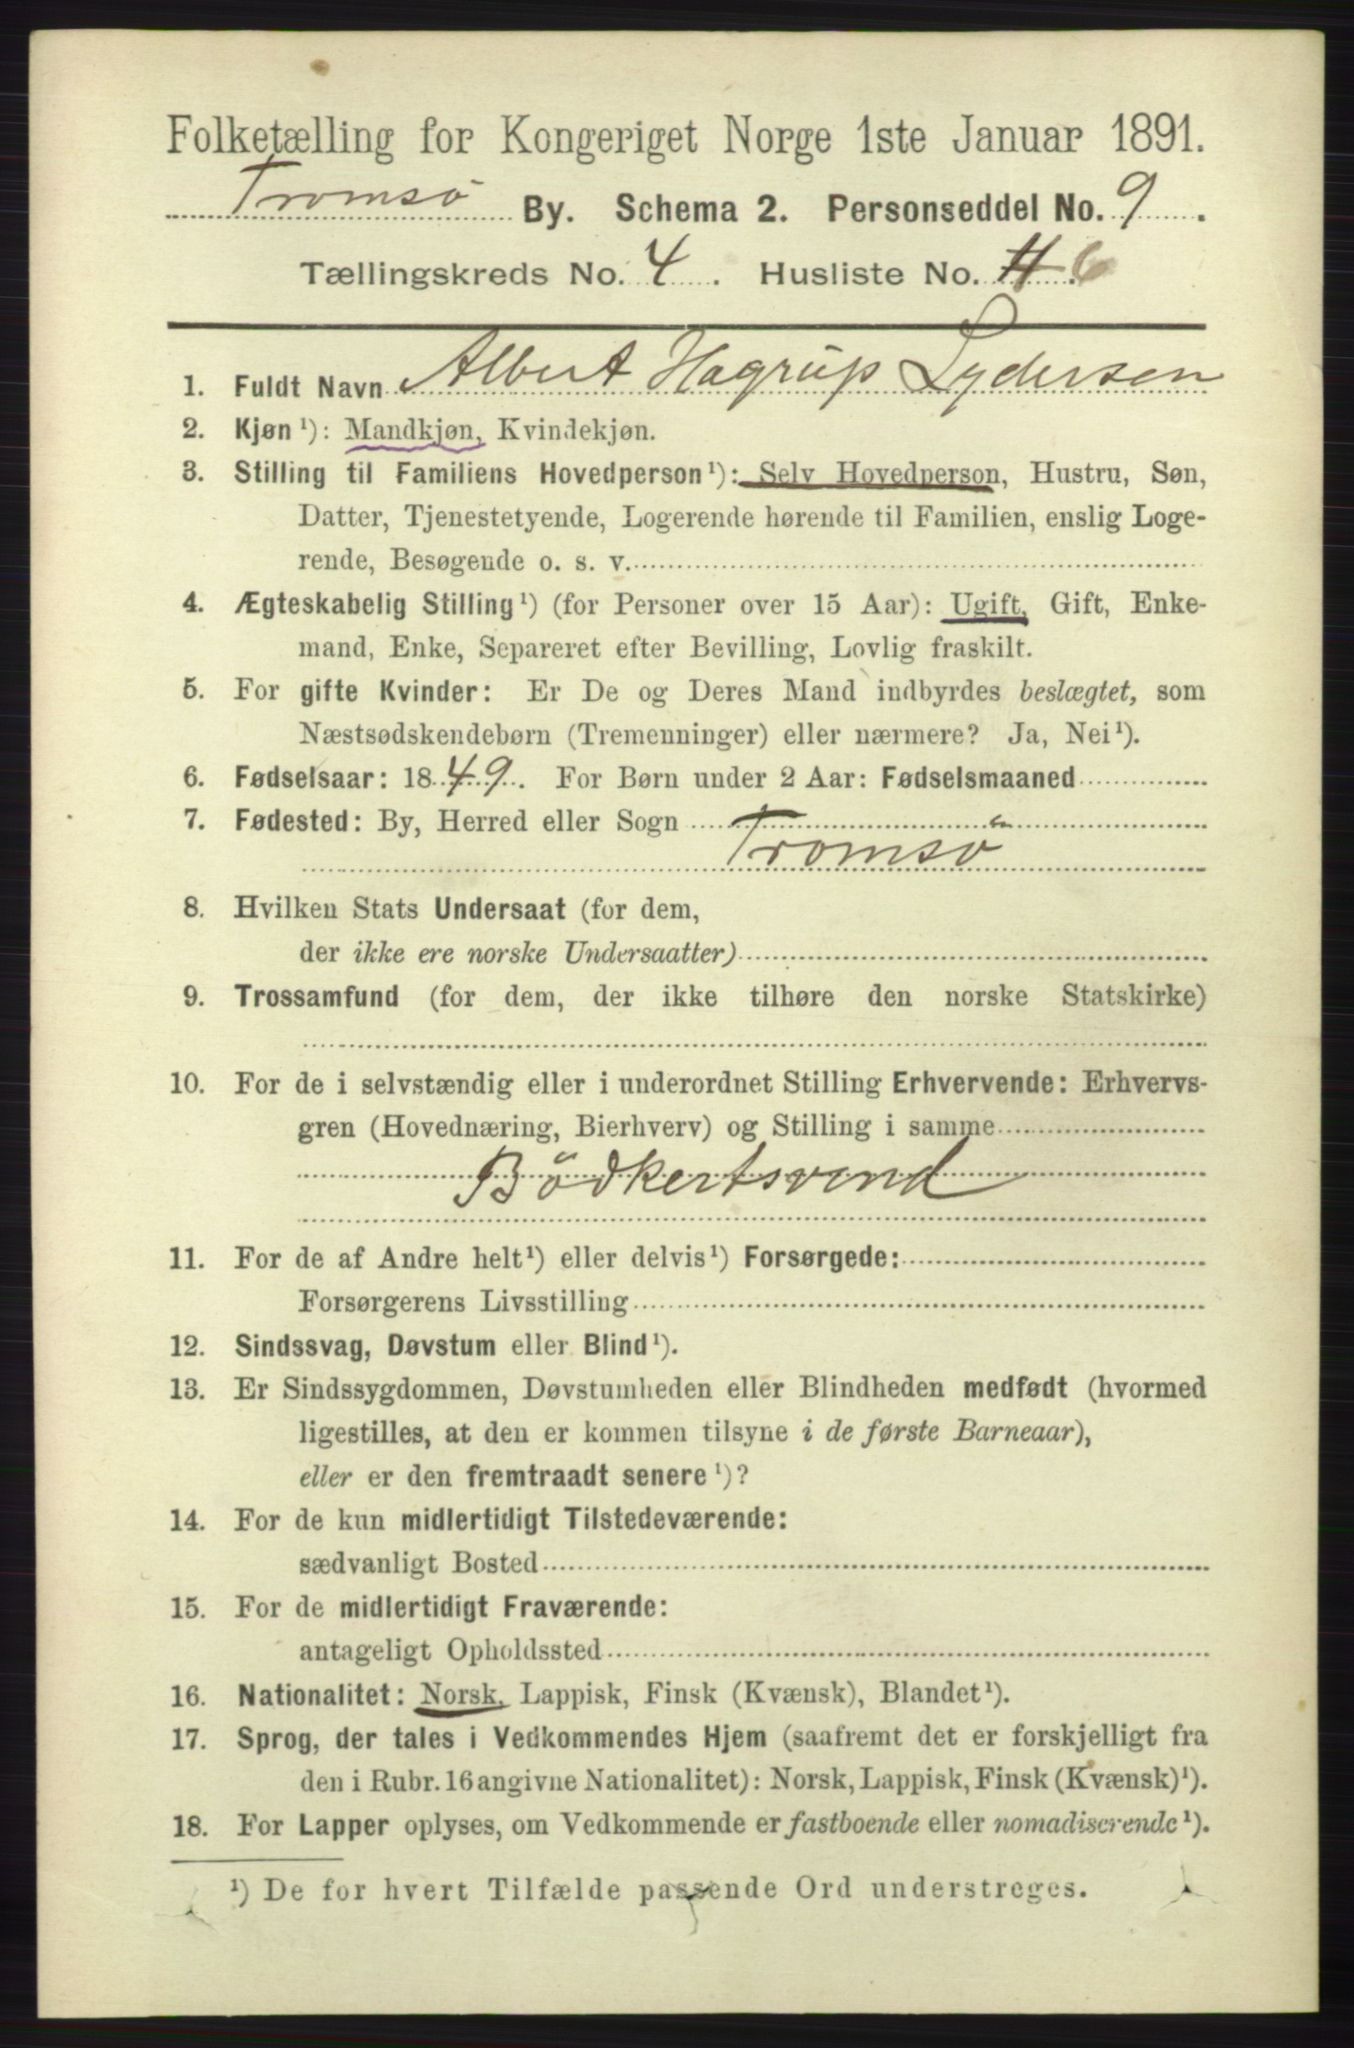 Folketælling for Kongeriget Norge 1ste Januar 1891.
Tromsö By. Schema 2. Personseddel No. 9.
Tællingskreds No. 4. Husliste No. 6
1. Fuldt Navn Albert Hagrup Lydersen
2. Kjøn¹): Mandkjøn, Kvindekjøn.
3. Stilling til Familiens Hovedperson¹): Selv Hovedperson, Hustru, Søn,
Datter, Tjenestetyende, Logerende hørende til Familien, enslig Loge-
rende, Besøgende o. s. v.
4. Ægteskabelig Stilling¹) (for Personer over 15 Aar): Ugift, Gift, Enke-
mand, Enke, Separeret efter Bevilling, Lovlig fraskilt.
5. For gifte Kvinder: Er De og Deres Mand indbyrdes beslægtet, som
Næstsødskendebørn (Tremenninger) eller nærmere? Ja, Nei¹).
6. Fødselsaar: 1849. For Børn under 2 Aar: Fødselsmaaned
7. Fødested: By, Herred eller Sogn
Tromsö
8. Hvilken Stats Undersaat (for dem,
der ikke ere norske Undersaatter)
9. Trossamfund (for dem, der ikke tilhøre den norske Statskirke)
10. For de i selvstændig eller i underordnet Stilling Erhvervende: Erhvervs-
gren (Hovednæring, Bierhverv) og Stilling i samme
Bödkertsvend
11. For de af Andre helt¹) eller delvis¹) Forsørgede:
Forsørgerens Livsstilling
12. Sindssvag, Døvstum eller Blind¹).
13. Er Sindssygdommen, Døvstumheden eller Blindheden medfødt (hvormed
ligestilles, at den er kommen tilsyne i de første Barneaar),
eller er den fremtraadt senere¹)?
14. For de kun midlertidigt Tilstedeværende:
sædvanligt Bosted
15. For de midlertidigt Fraværende:
antageligt Opholdssted
16. Nationalitet: Norsk, Lappisk, Finsk (Kvænsk), Blandet¹).
17. Sprog, der tales i Vedkommendes Hjem (saafremt det er forskjelligt fra
den i Rubr. 16 angivne Nationalitet): Norsk, Lappisk, Finsk (Kvænsk)¹).
18. For Lapper oplyses, om Vedkommende er fastboende eller nomadiserende¹).
¹) De for hvert Tilfælde passende Ord understreges.